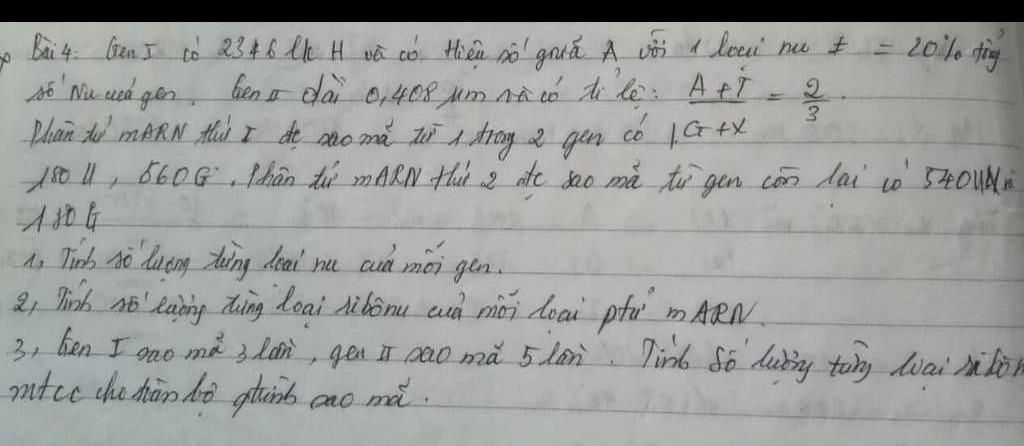 Bài 4: Gen I có 2346 lk H và có Hiệu số giữa A với 1 loại nu ≠ = 20% tổng
số Nu của gen. Gen II dài 0,408 µm và có tỉ lệ: A+T/G+X = 2/3.
Phân tử mARN thứ I đc sao mã từ 1 trong 2 gen có
180 U, 560G. Phân tử mARN thứ 2 đc sao mã từ gen còn lại có 540U
180G
1, Tính số lượng từng loại nu của mỗi gen.
2, Tính số lượng từng loại ribônu của mỗi loại ptử mARN.
3, Gen I sao mã 3 lần, gen II sao mã 5 lần. Tính số lượng từng loại
mtcc cho toàn bộ qtrình sao mã.